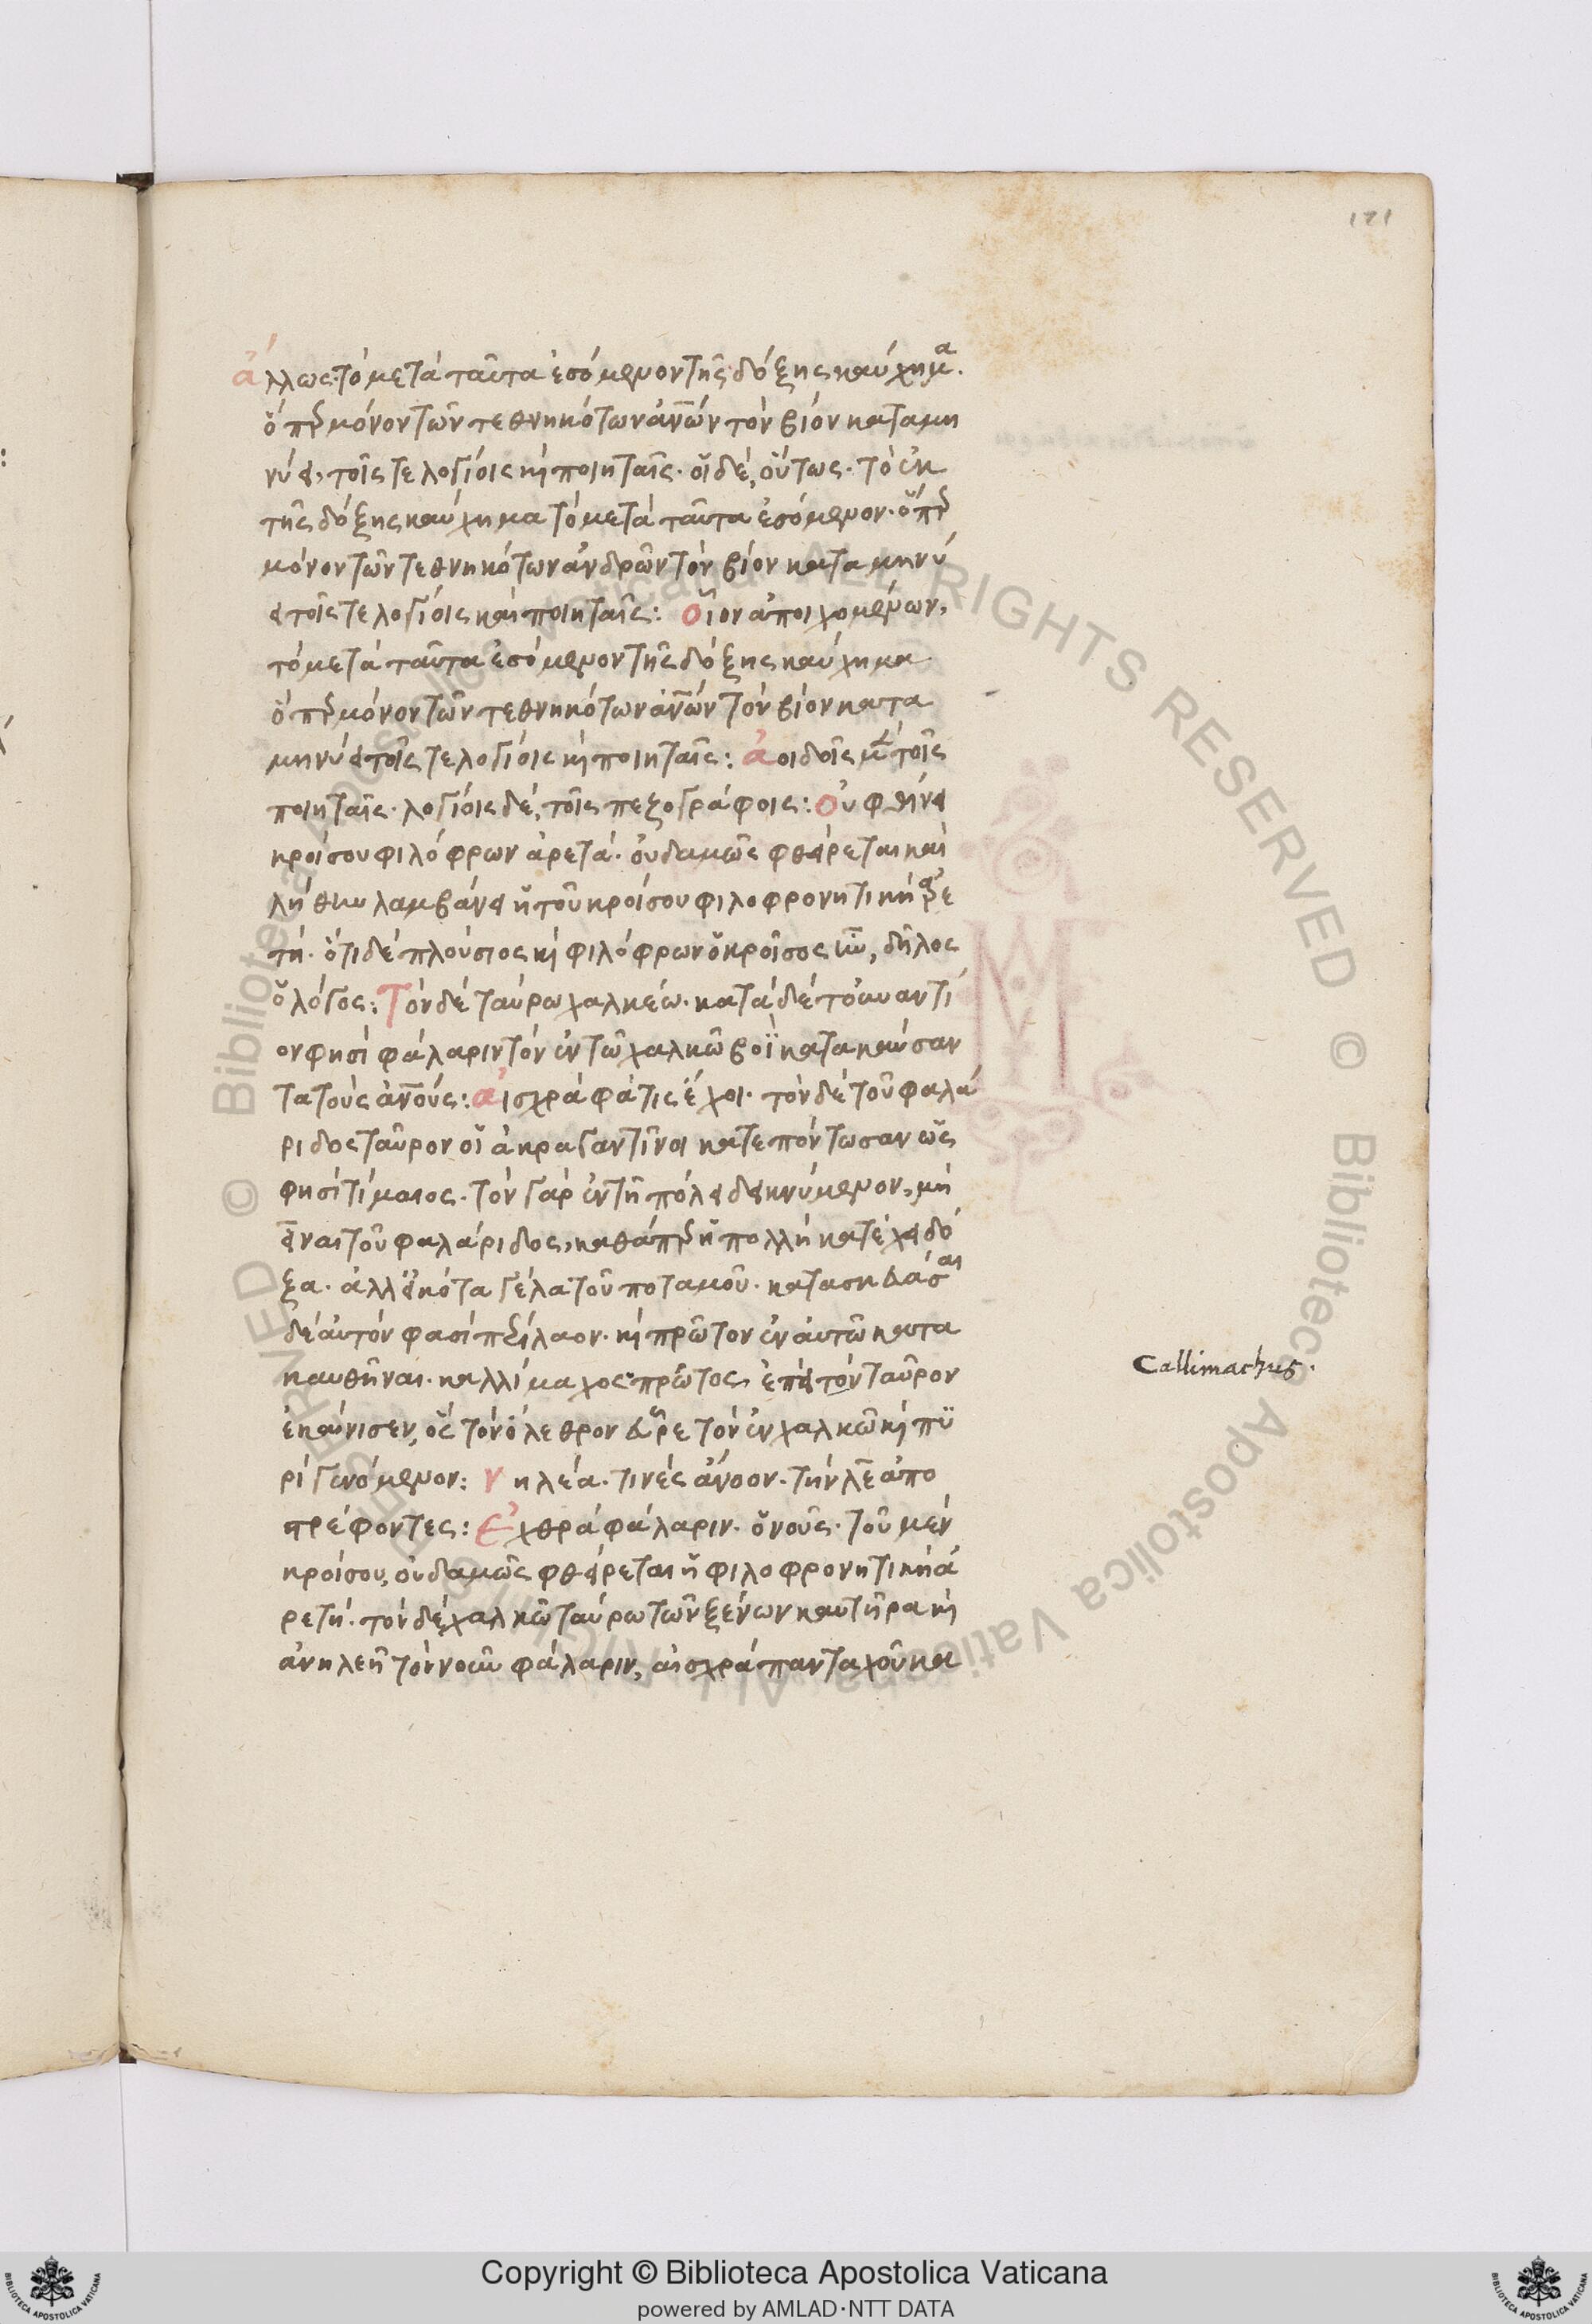 171
ἄλλως· τὸ μετὰ ταῦτα ἐσόμενον τῆς δόξης καύχημα.
ὅπερ μόνον τῶν τεθνηκότων ἀνων τὸν βίον καταμη
νύει, τοῖς τε λογίοις κὶ ποιηταῖς. οἱ δέ, οὕτως. τὸ ἐκ
τῆς δόξης καύχημα τὸ μετὰ ταῦτα ἐσόμενον. ὅπερ
μόνον τῶν τεθνηκότων ἀνδρῶν τὸν βίον καταμηνύ
ει τοῖς τε λογίοις καὶ ποιηταῖς: οἷον ἀποιχομένων,
τὸ μετὰ ταῦτα ἐσόμενον τῆς δόξης καύχημα
ὅπερ μόνον τῶν τεθνηκότων ἀνων τὸν βίον κατα
μηνύει τοῖς τε λογίοις κὶ ποιηταῖς: ἀοιδοῖς μὲν τοῖς
ποιηταῖς. λογίοις δέ, τοῖς πεζογράφοις: οὐ φθίνει
κροίσου φιλόφρων ἀρετά. οὐδαμῶς φθείρεται καὶ
λήθην λαμβάνει ἡ τοῦ κροίσου φιλοφρονητικὴ ἀρε
τή. ὅτι δὲ πλούσιος κὶ φιλόφρων ὁ κροῖσος ἦν, δῆλος
ὁ λόγος: Τὸν δὲ ταύρω χαλκέω. κατὰ δὲ τὸ ἐναντί
ον φησὶ φάλαριν τὸν ἐν τῶ χαλκῶ βοῒ κατακαύσαν
τα τοὺς ἀνους: αἰσχρὰ φάτις ἔχοι. τὸν δὲ τοῦ φαλά
ριδος ταῦρον οἱ ἀκραγαντῖνοι κατεπόντωσαν ὥς
φησὶ τίμαιος. τὸν γὰρ ἐν τῆ πόλει δεικνύμενον, μὴ
εἶναι τοῦ φαλάριδος, καθάπερ ἡ πολλὴ κατέχει δό
ξα. ἀλλ' εἰκότα γέλα τοῦ ποταμοῦ. κατασκευάσαι
δὲ αὐτόν φασὶ περίλαον. κὶ πρῶτον ἐν αὐτῶ κατα
καυθῆναι. καλλίμαχος· πρῶτος, ἐπεὶ τὸν ταῦρον
ἐκαίνισεν, ὃς τὸν ὄλεθρον εὗρε τὸν ἐν χαλκῶ κὶ πϋ
ρὶ γενόμενον: νηλέα. τινὲς ἄνοον. τὴν λε ἀπο
τρέφοντες: Ἐχθρὰ φάλαριν. ὁ νοῦς. τοῦ μὲν
κροίσου, οὐδαμῶς φθείρεται ἡ φιλοφρονητικὴ ἀ
ρετή. τὸν δὲ χαλκῶ ταύρω τῶν ξένων καυτῆρα κὶ
ἀνηλεῆ τὸν νοῦν φάλαριν, αἰσχρὰ πανταχοῦ κα
Callimachus.
© Biblioteca Apostolica Vaticana ALL RIGHTS RESERVED © Biblioteca Apostolica Vaticana ALL RIGHTS RESERVED
Copyright © Biblioteca Apostolica Vaticana
powered by AMLAD·NTT DATA
BIBLIOTECA APOSTOLICA VATICANA
BIBLIOTECA APOSTOLICA VATICANA